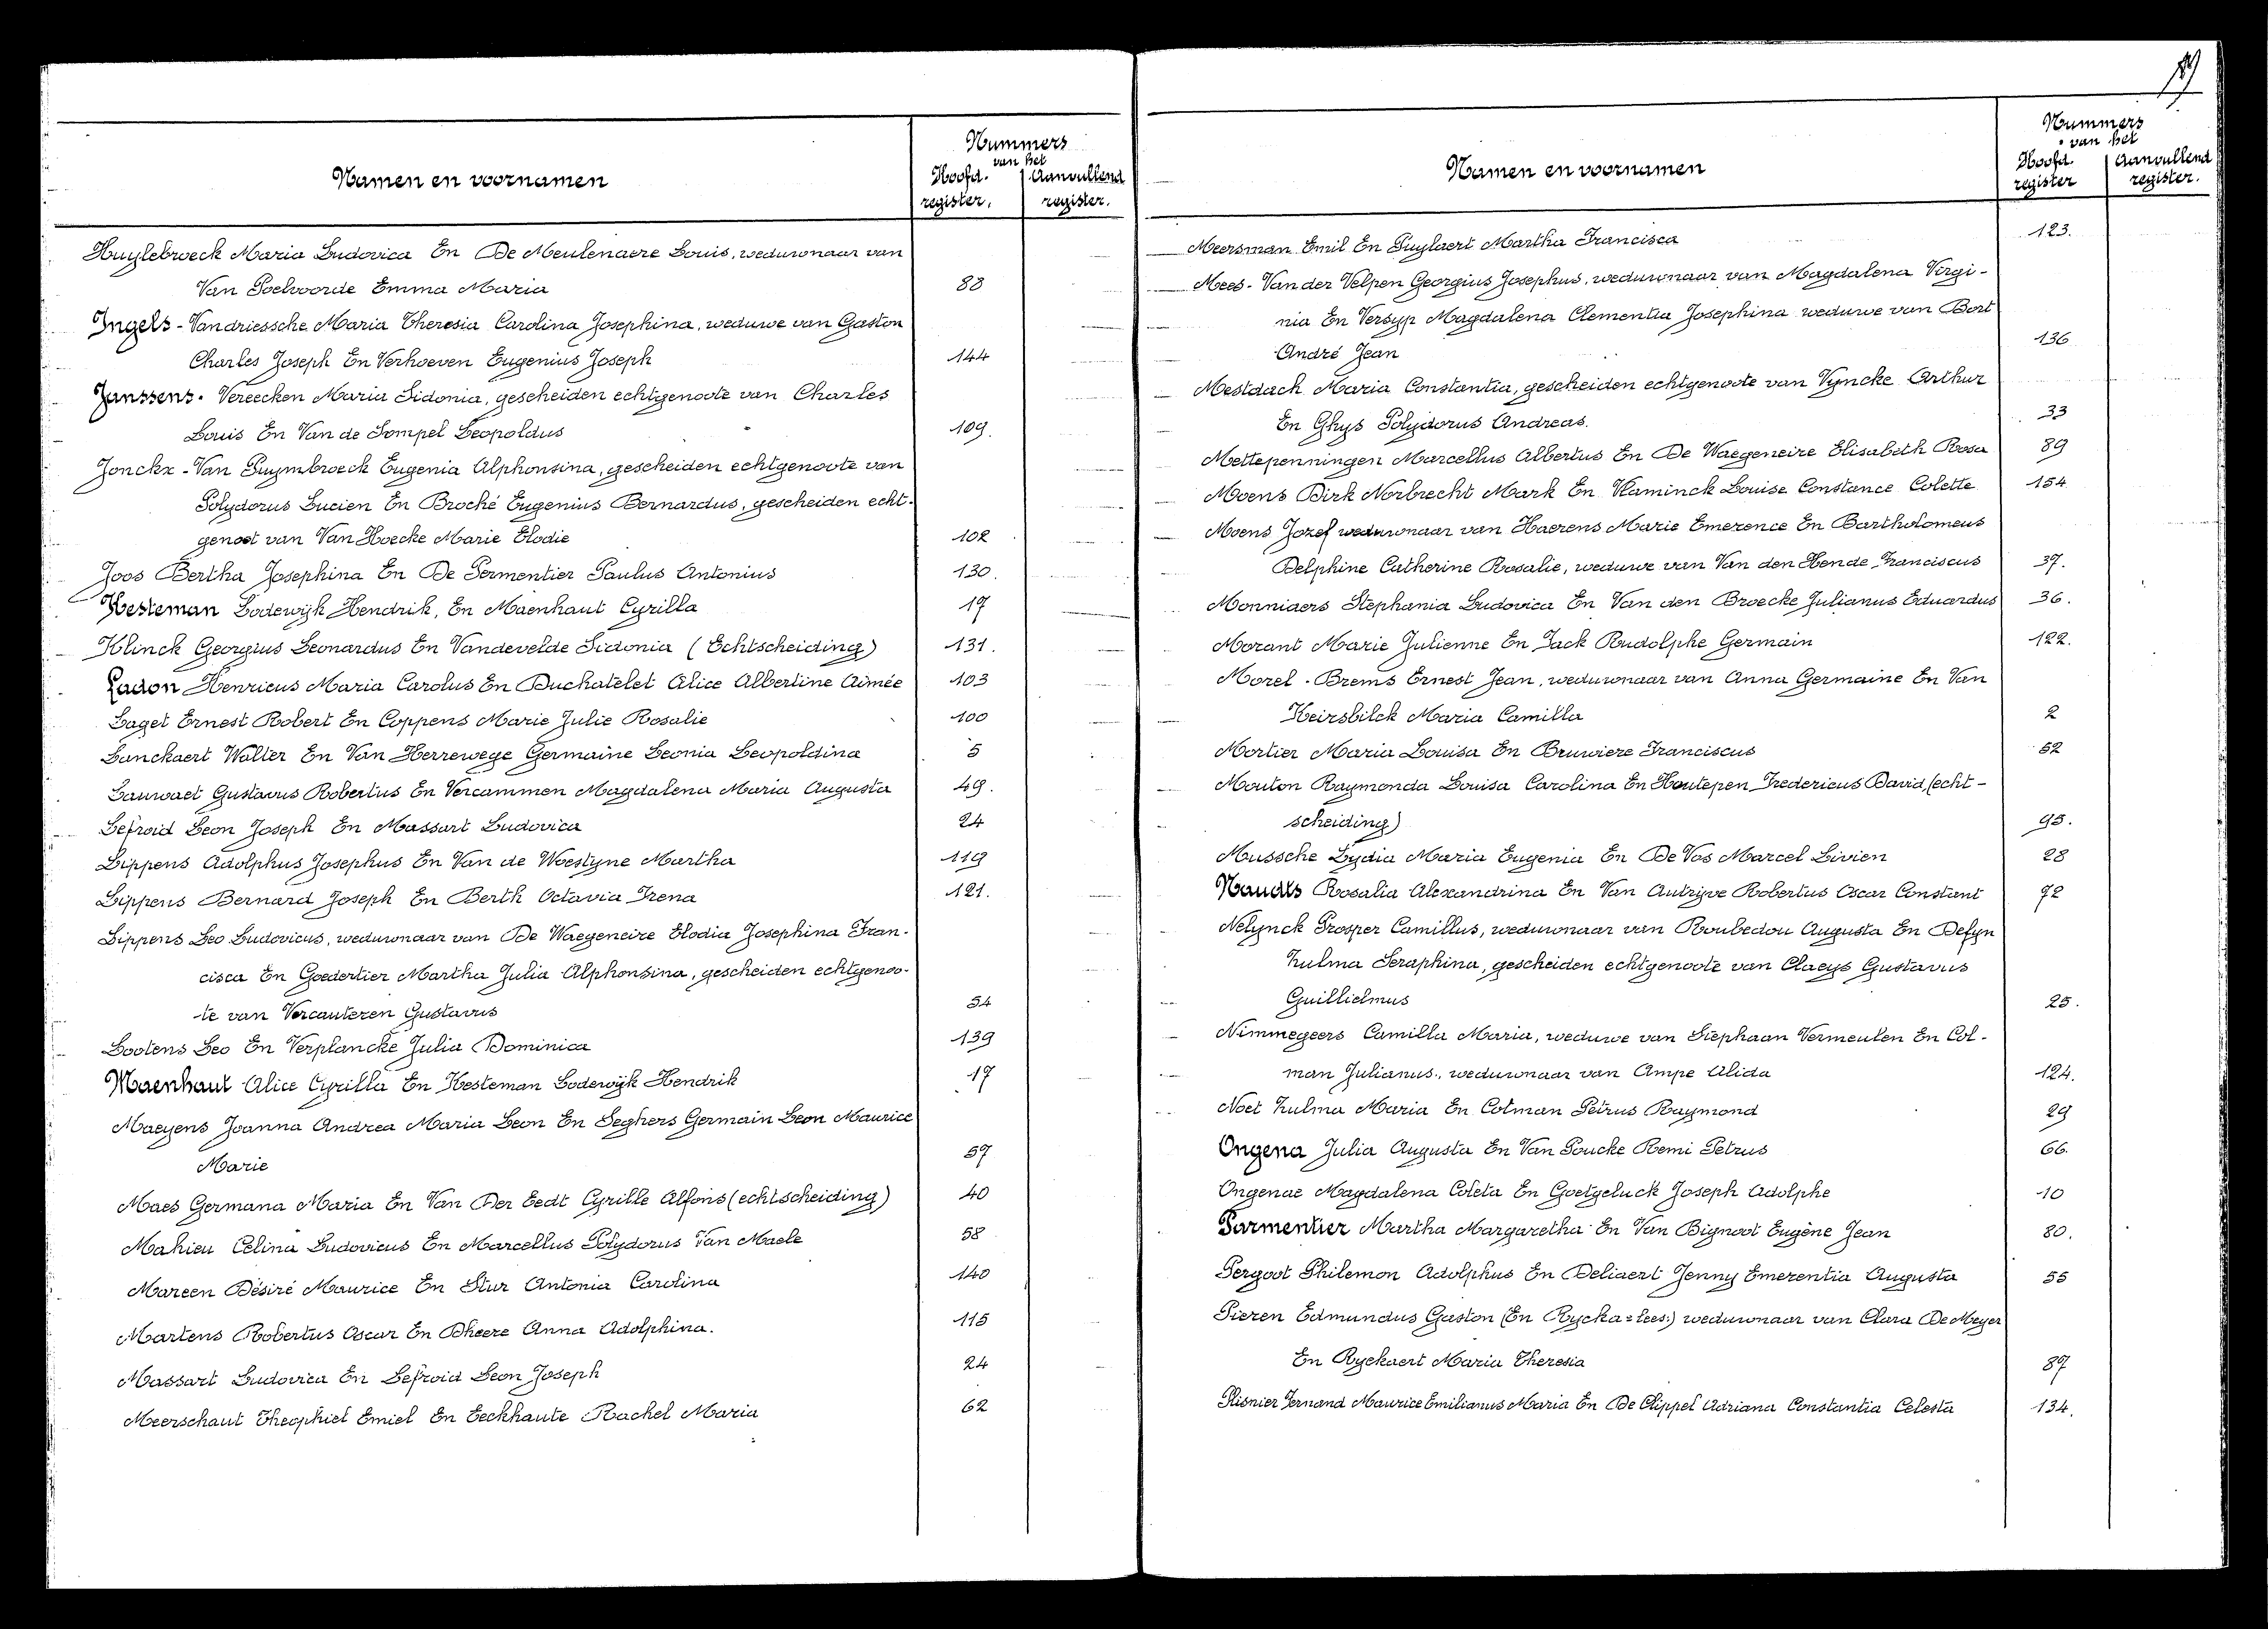 Nummers
van het
Namen en voornamen
Hoofd. Aanvullend
register. register.
Huylebroeck Maria Ludovica En De Meulenaere Louis, weduwnaar van
Van Poelvoorde Emma Maria 88
Ingels - Vandriessche Maria Theresia Carolina Josephina, weduwe van Gaston
Charles Joseph En Verhoeven Eugenius Joseph 144
Janssens. Vereecken Maria Sidonia, gescheiden echtgenoote van Charles
Louis En Van de Sompel Leopoldus 109.
Jonckx - Van Puymbroeck Eugenia Alphonsina, gescheiden echtgenoote van
Polydorus Lucien En Broché Eugenius Bernardus, gescheiden echt-
genoot van Van Hoecke Marie Elodie 102
Joos Bertha Josephina En De Permentier Paulus Antonius 130.
Kesteman Lodewijk Hendrik, En Maenhaut Cyrilla 17
Klinck Georgius Leonardus En Vandevelde Sidonia (Echtscheiding) 131.
Ladon Henricus Maria Carolus En Duchatelet Alice Albertine Aimée 103
Laget Ernest Robert En Coppens Marie Julie Rosalie 100
Lanckaert Walter En Van Herrewege Germaine Leonia Leopoldina 5
Lauwaet Gustavus Robertus En Vercammen Magdalena Maria Augusta 49.
Lefroid Leon Joseph En Massart Ludovica 24
Lippens Adolphus Josephus En Van de Woestyne Martha 119
Lippens Bernard Joseph En Berth Octavia Irena 121.
Lippens Leo Ludovicus, weduwnaar van De Waegeneire Elodia Josephina Fran-
cisca En Goedertier Martha Julia Alphonsina, gescheiden echtgenoo-
te van Vercauteren Gustavus 54
Lootens Leo En Verplancke Julia Dominica 139
Maenhaut Alice Cyrilla En Kesteman Lodewijk Hendrik 17
Maeyens Joanna Andrea Maria Leon En Seghers Germain Leon Maurice
Marie 57
Maes Germana Maria En Van Der Eedt Cyrille Alfons (echtscheiding) 40
Mahieu Celina Ludovicus En Marcellus Polydorus Van Maele 58
Mareen Désiré Maurice En Stur Antonia Carolina 140
Martens Robertus Oscar En Dheere Anna Adolphina. 115
Massart Ludovica En Lefroid Leon Joseph 24
Meerschaut Theophiel Emiel En Eeckhaute Rachel Maria 62
Nummers
van het
Namen en voornamen
Hoofd. Aanvullend
register register.
Meersman Emil En Puylaert Martha Francisca 123.
Mees - Van der Velpen Georgius Josephus, weduwnaar van Magdalena Virgi-
nia En Versyp Magdalena Clementia Josephina weduwe van Bort
André Jean 136
Mestdach Maria Constantia, gescheiden echtgenoote van Vyncke Arthur
En Ghys Polydorus Andreas. 33
Mettepenningen Marcellus Albertus En De Waegeneire Elisabeth Rosa 89
Moens Dirk Norbrecht Mark En Vlaminck Louise Constance Colette 154
Moens Jozef weduwnaar van Haerens Marie Emerence En Bartholomeus
Delphine Catherine Rosalie, weduwe van Van den Hende Franciscus 37.
Monniaers Stephania Ludovica En Van den Broecke Julianus Eduardus 36.
Morant Marie Julienne En Jack Rudolphe Germain 122.
Morel - Brems Ernest Jean, weduwnaar van Anna Germaine En Van
Keirsbilck Maria Camilla 2
Mortier Maria Louisa En Bruwiere Franciscus 52
Mouton Raymonda Louisa Carolina En Houtepen Fredericus David, (echt-
scheiding) 95.
Mussche Lydia Maria Eugenia En De Vos Marcel Livien 28
Naudts Rosalia Alexandrina En Van Autryve Robertus Oscar Constant 72
Nelynck Prosper Camillus, weduwnaar van Roubedou Augusta En Defyn
Zulma Seraphina, gescheiden echtgenoote van Claeys Gustavus
Guillielmus 25.
Nimmegeers Camilla Maria, weduwe van Stephaan Vermeulen En Col-
man Julianus, weduwnaar van Ampe Alida 124.
Noet Zulma Maria En Colman Petrus Raymond 29
Ongena Julia Augusta En Van Poucke Remi Petrus 66.
Ongenae Magdalena Coleta En Goetgeluck Joseph Adolphe 10
Parmentier Martha Margaretha En Van Bignoot Eugène Jean 80.
Pergoot Philemon Adolphus En Deliaert Jenny Emerentia Augusta 55
Pieren Edmundus Gaston (En Rycka = lees:) weduwnaar van Clara De Meyer
En Ryckaert Maria Theresia 87
Plisnier Fernand Maurice Emilianus Maria En De Clippel Adriana Constantia Celesta 134.